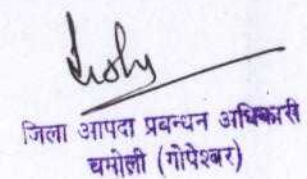 जिला आपदा प्रबन्धन अधिकारी
चमोली (गोपेश्वर)